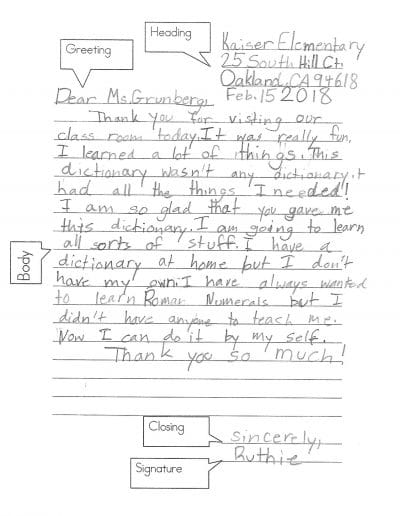 Heading
Kaiser Elementary
25 South Hill Ct.
Greeting
Oakland, CA 94618
Feb. 15 2018
Dear Ms. Grunberg,
Thank you for visting our
class room today. It was really fun.
I learned a lot of things. This
dictionary wasn't any dictionary, t
had all the things I needed!
I am so glad that you gave me
this dictionary. I am going to learn
all sorts of stuff. I have a
Body
dictionary at home but I don't
have my own. I have always wanted
to learn Roman Numerals but I
didn't have anyone to teach me.
Now I can do it by my self.
Thank you so much!
Closing
sincerely,
Ruthie
Signature